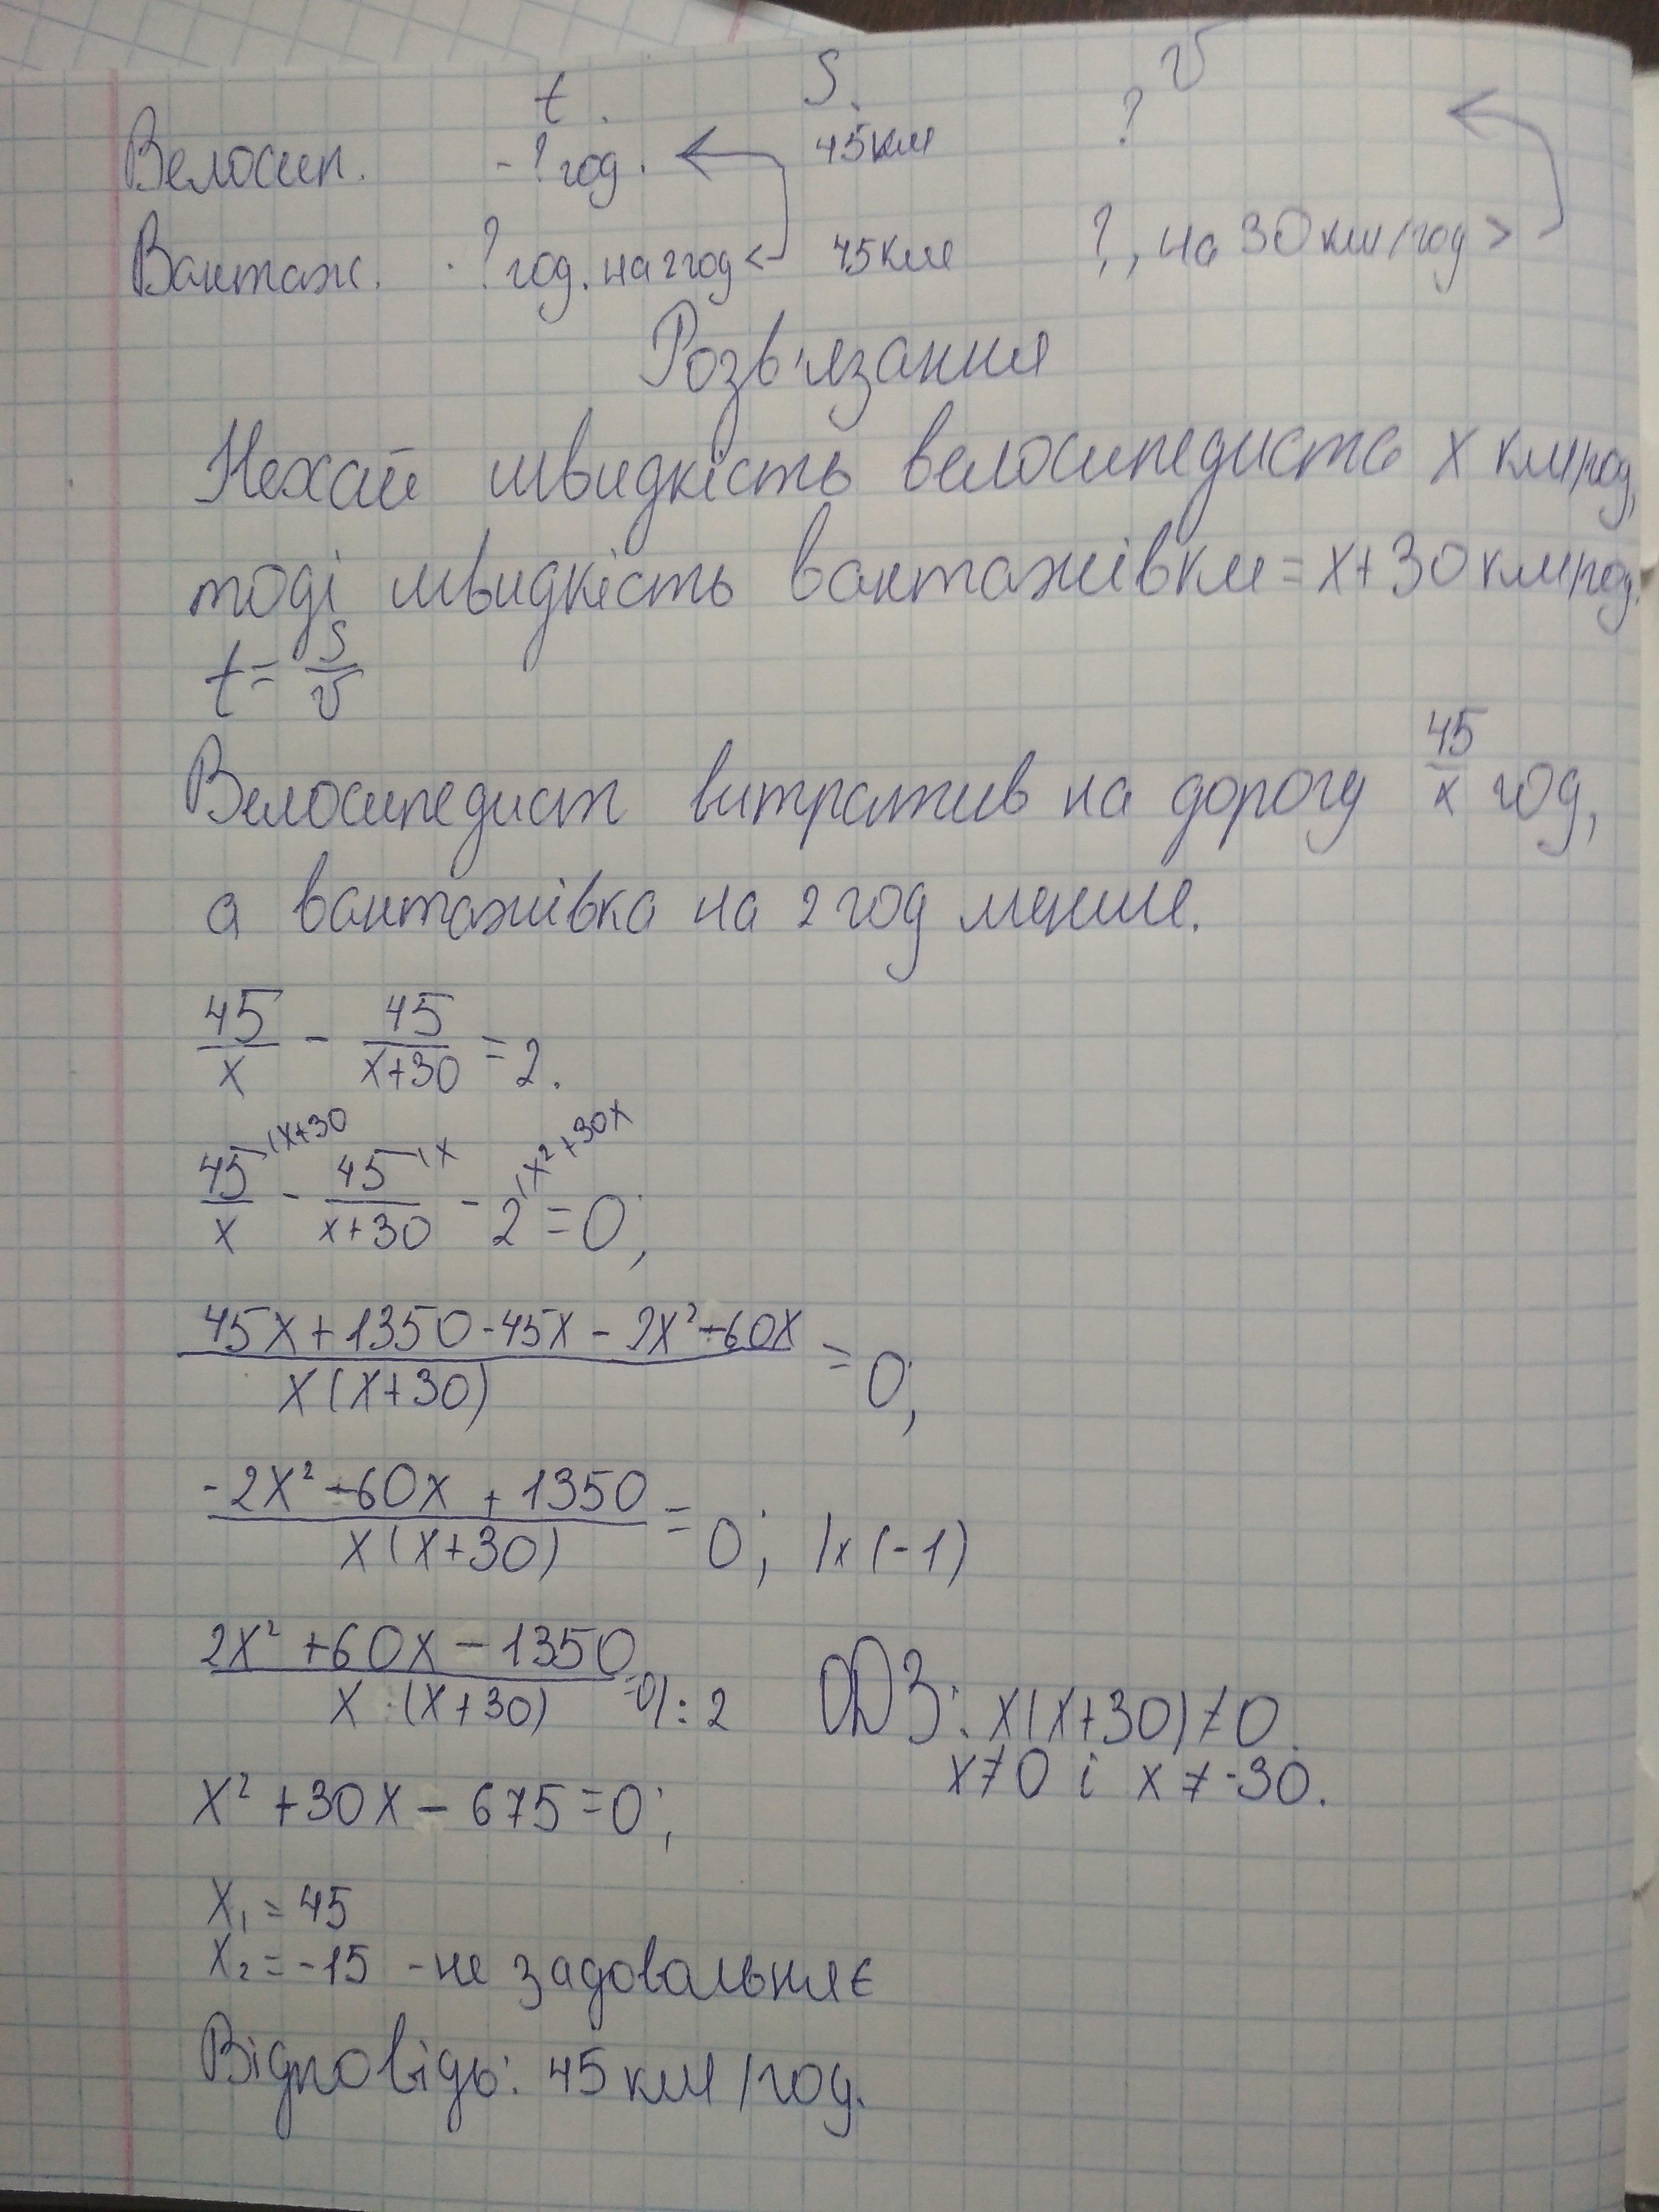 t. S. v
Велосип. - ? год. 45км ?
Вантаж. . ? год. на 2 год < 45км ?, на 30 км/год >
Розв'язання
Нехай швидкість велосипедиста x км/год,
тоді швидкість вантажівки = x+30 км/год.
t = S/v
Велосипедист витратив на дорогу 45/x год,
а вантажівка на 2 год менше.
45/x - 45/(x+30) = 2.
45/x (x+30 - 45/(x+30) (x - 2 (x²+30x = 0;
(45x+1350-45x-2x²-60x)/(x(x+30)) = 0;
(-2x²-60x+1350)/(x(x+30)) = 0; |x(-1)
(2x²+60x-1350)/(x·(x+30)) =0|:2 ОДЗ: x(x+30)≠0.
x≠0 і x≠-30.
x²+30x-675=0;
x₁=45
x₂=-15 - не задовальняє
Відповідь: 45 км/год.